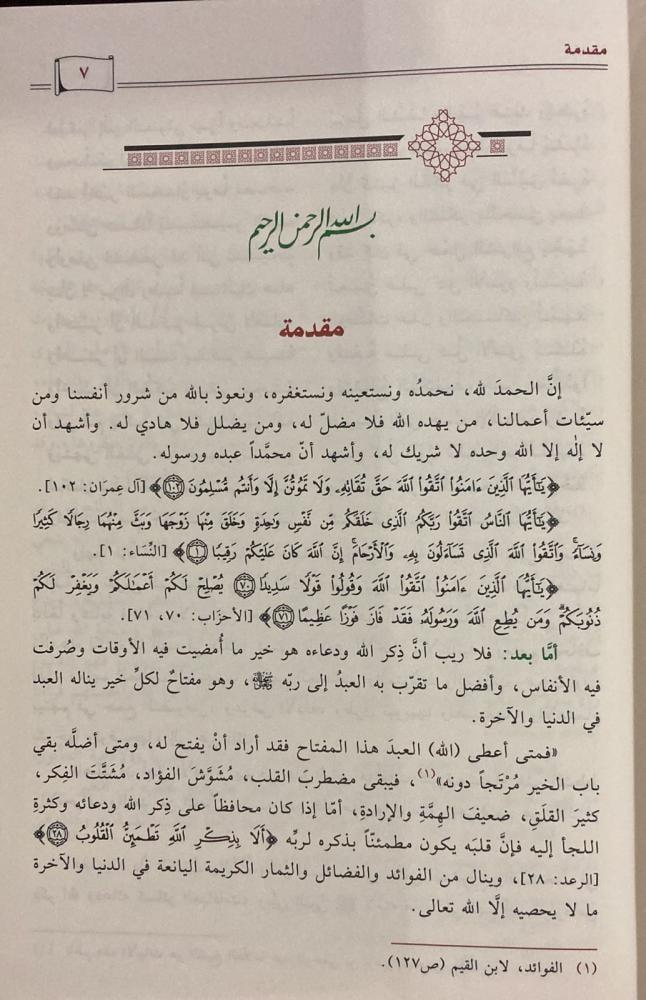 مقدمة
٧
بسم الله الرحمن الرحيم
مقدمة
إنَّ الحمدَ لله، نحمدُه ونستعينه ونستغفره، ونعوذ بالله من شرور أنفسنا ومن
سيّئات أعمالنا، من يهده الله فلا مضلّ له، ومن يضلل فلا هادي له. وأشهد أن
لا إلٰه إلا الله وحده لا شريك له، وأشهد أنّ محمَّداً عبده ورسوله.
﴿يَٰٓأَيُّهَا ٱلَّذِينَ ءَامَنُوا۟ ٱتَّقُوا۟ ٱللَّهَ حَقَّ تُقَاتِهِۦ وَلَا تَمُوتُنَّ إِلَّا وَأَنتُم مُّسْلِمُونَ ١٠٢﴾ [آل عِمرَان: ١٠٢].
﴿يَٰٓأَيُّهَا ٱلنَّاسُ ٱتَّقُوا۟ رَبَّكُمُ ٱلَّذِى خَلَقَكُم مِّن نَّفْسٍ وَٰحِدَةٍ وَخَلَقَ مِنْهَا زَوْجَهَا وَبَثَّ مِنْهُمَا رِجَالًا كَثِيرًا
وَنِسَآءً ۚ وَٱتَّقُوا۟ ٱللَّهَ ٱلَّذِى تَسَآءَلُونَ بِهِۦ وَٱلْأَرْحَامَ ۚ إِنَّ ٱللَّهَ كَانَ عَلَيْكُمْ رَقِيبًا ١﴾ [النِّسَاء: ١].
﴿يَٰٓأَيُّهَا ٱلَّذِينَ ءَامَنُوا۟ ٱتَّقُوا۟ ٱللَّهَ وَقُولُوا۟ قَوْلًا سَدِيدًا ٧٠ يُصْلِحْ لَكُمْ أَعْمَٰلَكُمْ وَيَغْفِرْ لَكُمْ
ذُنُوبَكُمْ ۗ وَمَن يُطِعِ ٱللَّهَ وَرَسُولَهُۥ فَقَدْ فَازَ فَوْزًا عَظِيمًا ٧١﴾ [الأحزَاب: ٧٠، ٧١].
أمَّا بعد: فلا ريب أنَّ ذِكر الله ودعاءه هو خير ما أُمضيت فيه الأوقات وصُرفت
فيه الأنفاس، وأفضل ما تقرّب به العبدُ إلى ربّه ﷺ، وهو مفتاحٌ لكلِّ خير يناله العبد
في الدنيا والآخرة.
«فمتى أعطى (الله) العبدَ هذا المفتاح فقد أراد أنْ يفتح له، ومتى أضلَّه بقي
باب الخير مُرْتَجاً دونه»(١)، فيبقى مضطربَ القلب، مُشَوَّشَ الفؤاد، مُشَتَّتَ الفِكر،
كثيرَ القلَقِ، ضعيفَ الهِمَّةِ والإرادةِ، أمّا إذا كان محافظاً على ذِكر الله ودعائه وكثرةِ
اللجأ إليه فإنَّ قلبَه يكون مطمئنّاً بذكره لربِّه ﴿أَلَا بِذِكْرِ ٱللَّهِ تَطْمَئِنُّ ٱلْقُلُوبُ ٢٨﴾
[الرعد: ٢٨]، وينال من الفوائد والفضائل والثمار الكريمة اليانعة في الدنيا والآخرة
ما لا يحصيه إلَّا الله تعالى.
(١) الفوائد، لابن القيم (ص١٢٧).